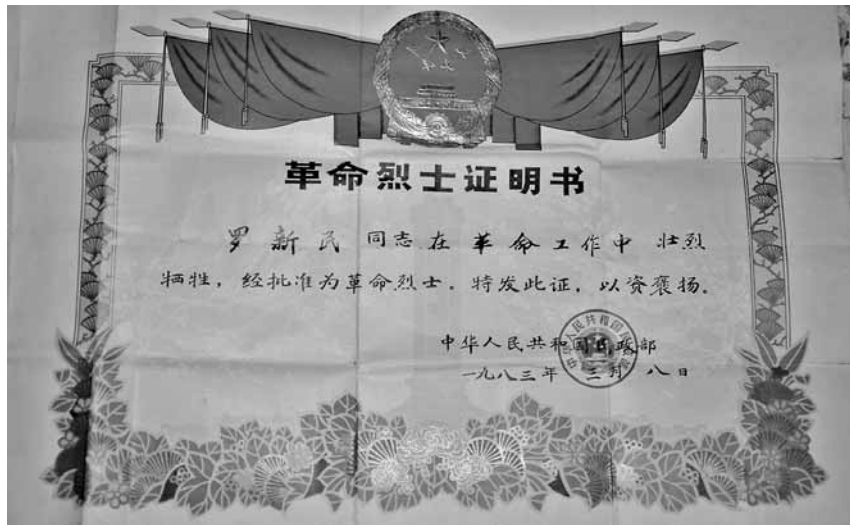 革命烈士证明书
罗新民 同志在 革命工作中 壮烈
牺牲，经批准为革命烈士。特发此证，以资褒扬。
中华人民共和国民政部
一九八三年 三月 八日